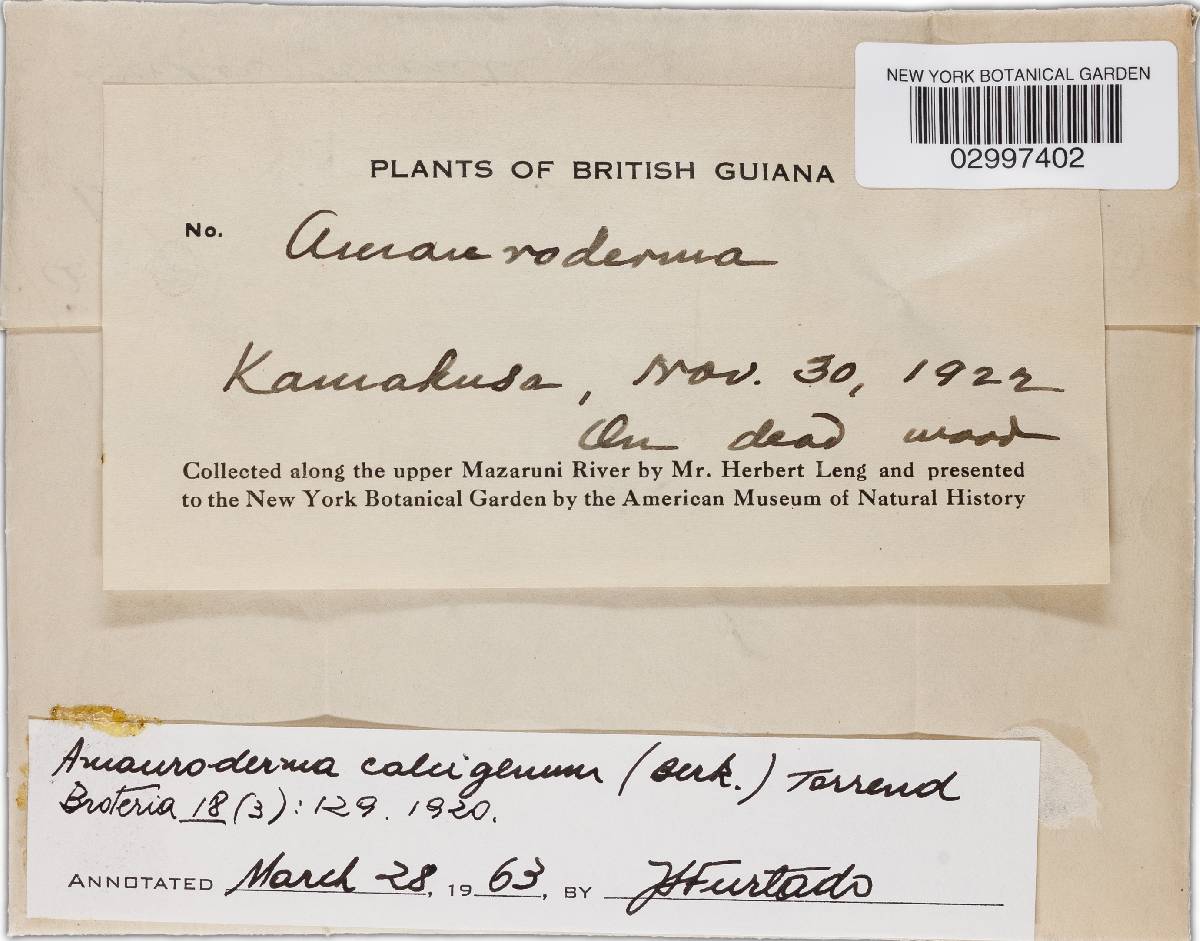 NEW YORK BOTANICAL GARDEN
02997402
PLANTS OF BRITISH GUIANA
No. Amauroderma
Kamakusa, Nov. 30, 1922
On dead wood
Collected along the upper Mazaruni River by Mr. Herbert Leng and presented
to the New York Botanical Garden by the American Museum of Natural History
Amauroderma calcigenum (Berk.) Torrend
Broteria 18 (3): 129. 1920.
ANNOTATED March 28, 1963, BY JS Furtado